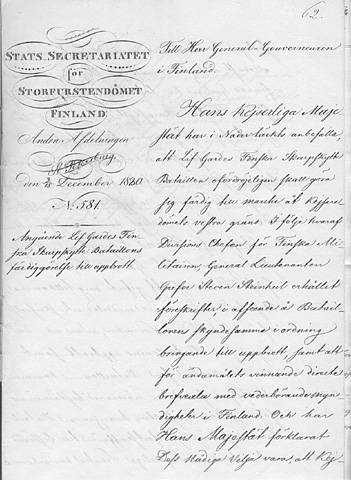 62.
STATS-SECRETARIATET
for
STORFURSTENDÖMET
FINLAND
Andra Afdelningen
St Petersburg
den December 1830
No. 581.
Angående Lif Gardes Fin-
ska Skarpskytte Bataillons
färdiggörelse till uppbrott.
Till Herr General-Gouverneuren
i Finland.
Hans Kejserliga Maje
stät har i Nåder täckts anbefalla,
att Lif Gardes Finska Skarpskytte
Bataillon ofördröjeligen skall göra
sig färdig till marche åt Kejsare
dömets vestra gräns. Till följe hvaraf
Divisions Chefen för Finska Mi-
litairen, General Lieutenanten
Grefve Steven Steinheil erhållit
föreskrifter, i afseende å Batail-
lonens skyndsamma i ordning
bringande till uppbrott, samt att
för ändamålets vinnande directe
brefvexla med vederbörande myn-
digheter i Finland. Och har
Hans Majestät förklarat
Dess Nådiga Vilja vara, att Kej-